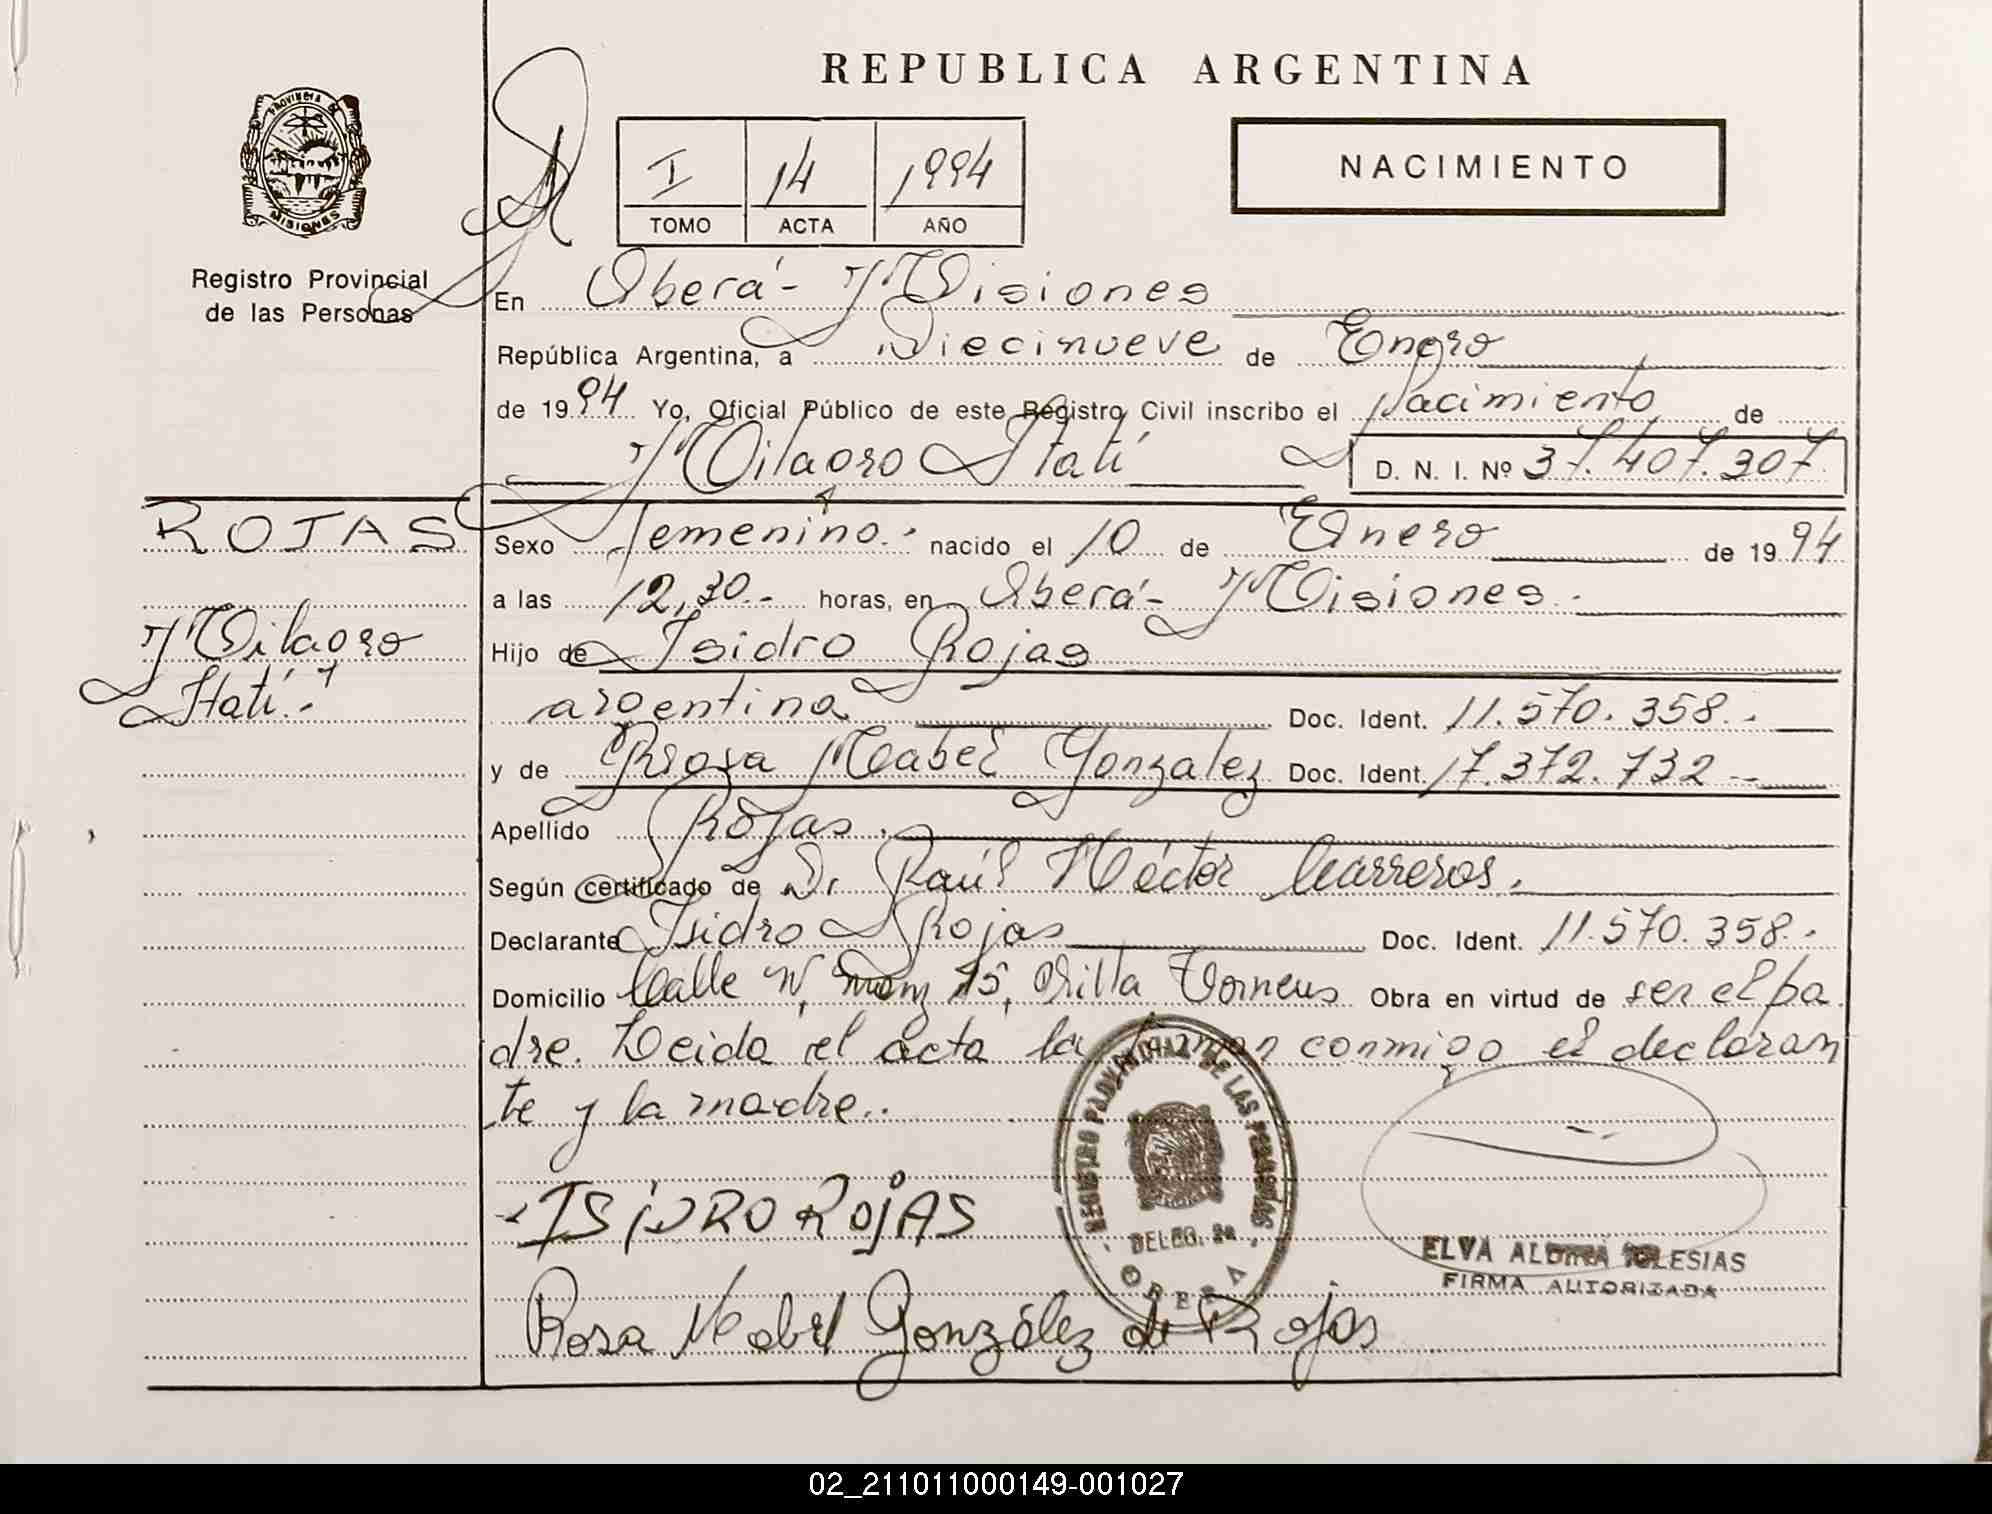 REPUBLICA ARGENTINA
PROVINCIA DE
MISIONES
Registro Provincial
de las Personas
I 14 1994
TOMO ACTA AÑO
NACIMIENTO
En Oberá - Misiones
República Argentina, a Diecinueve de Enero
de 1994 Yo, Oficial Público de este Registro Civil inscribo el Nacimiento de
Milagro Itatí D. N. I. Nº 37.407.307.
ROJAS
Milagro
Itatí.-
Sexo femenino.- nacido el 10 de Enero de 1994
a las 12,30.- horas, en Oberá - Misiones.-
Hijo de Isidro Rojas
argentina Doc. Ident. 11.570.358.-
y de Rosa Mabel Gonzalez Doc. Ident. 17.372.732.-
Apellido Rojas.
Según certificado de Dr Raúl Héctor Carreros.
Declarante Isidro Rojas Doc. Ident. 11.570.358.-
Domicilio Calle N, manz 15, Villa Obra en virtud de ser el pa
dre. Leida el acta la firman conmigo el declaran
te y la madre..
ISIDRO ROJAS
REGISTRO PROVINCIAL DE LAS PERSONAS
DELEG. 2a
OBERA
ELVA IGLESIAS
FIRMA AUTORIZADA
Rosa Mabel González de Rojas
02_211011000149-001027